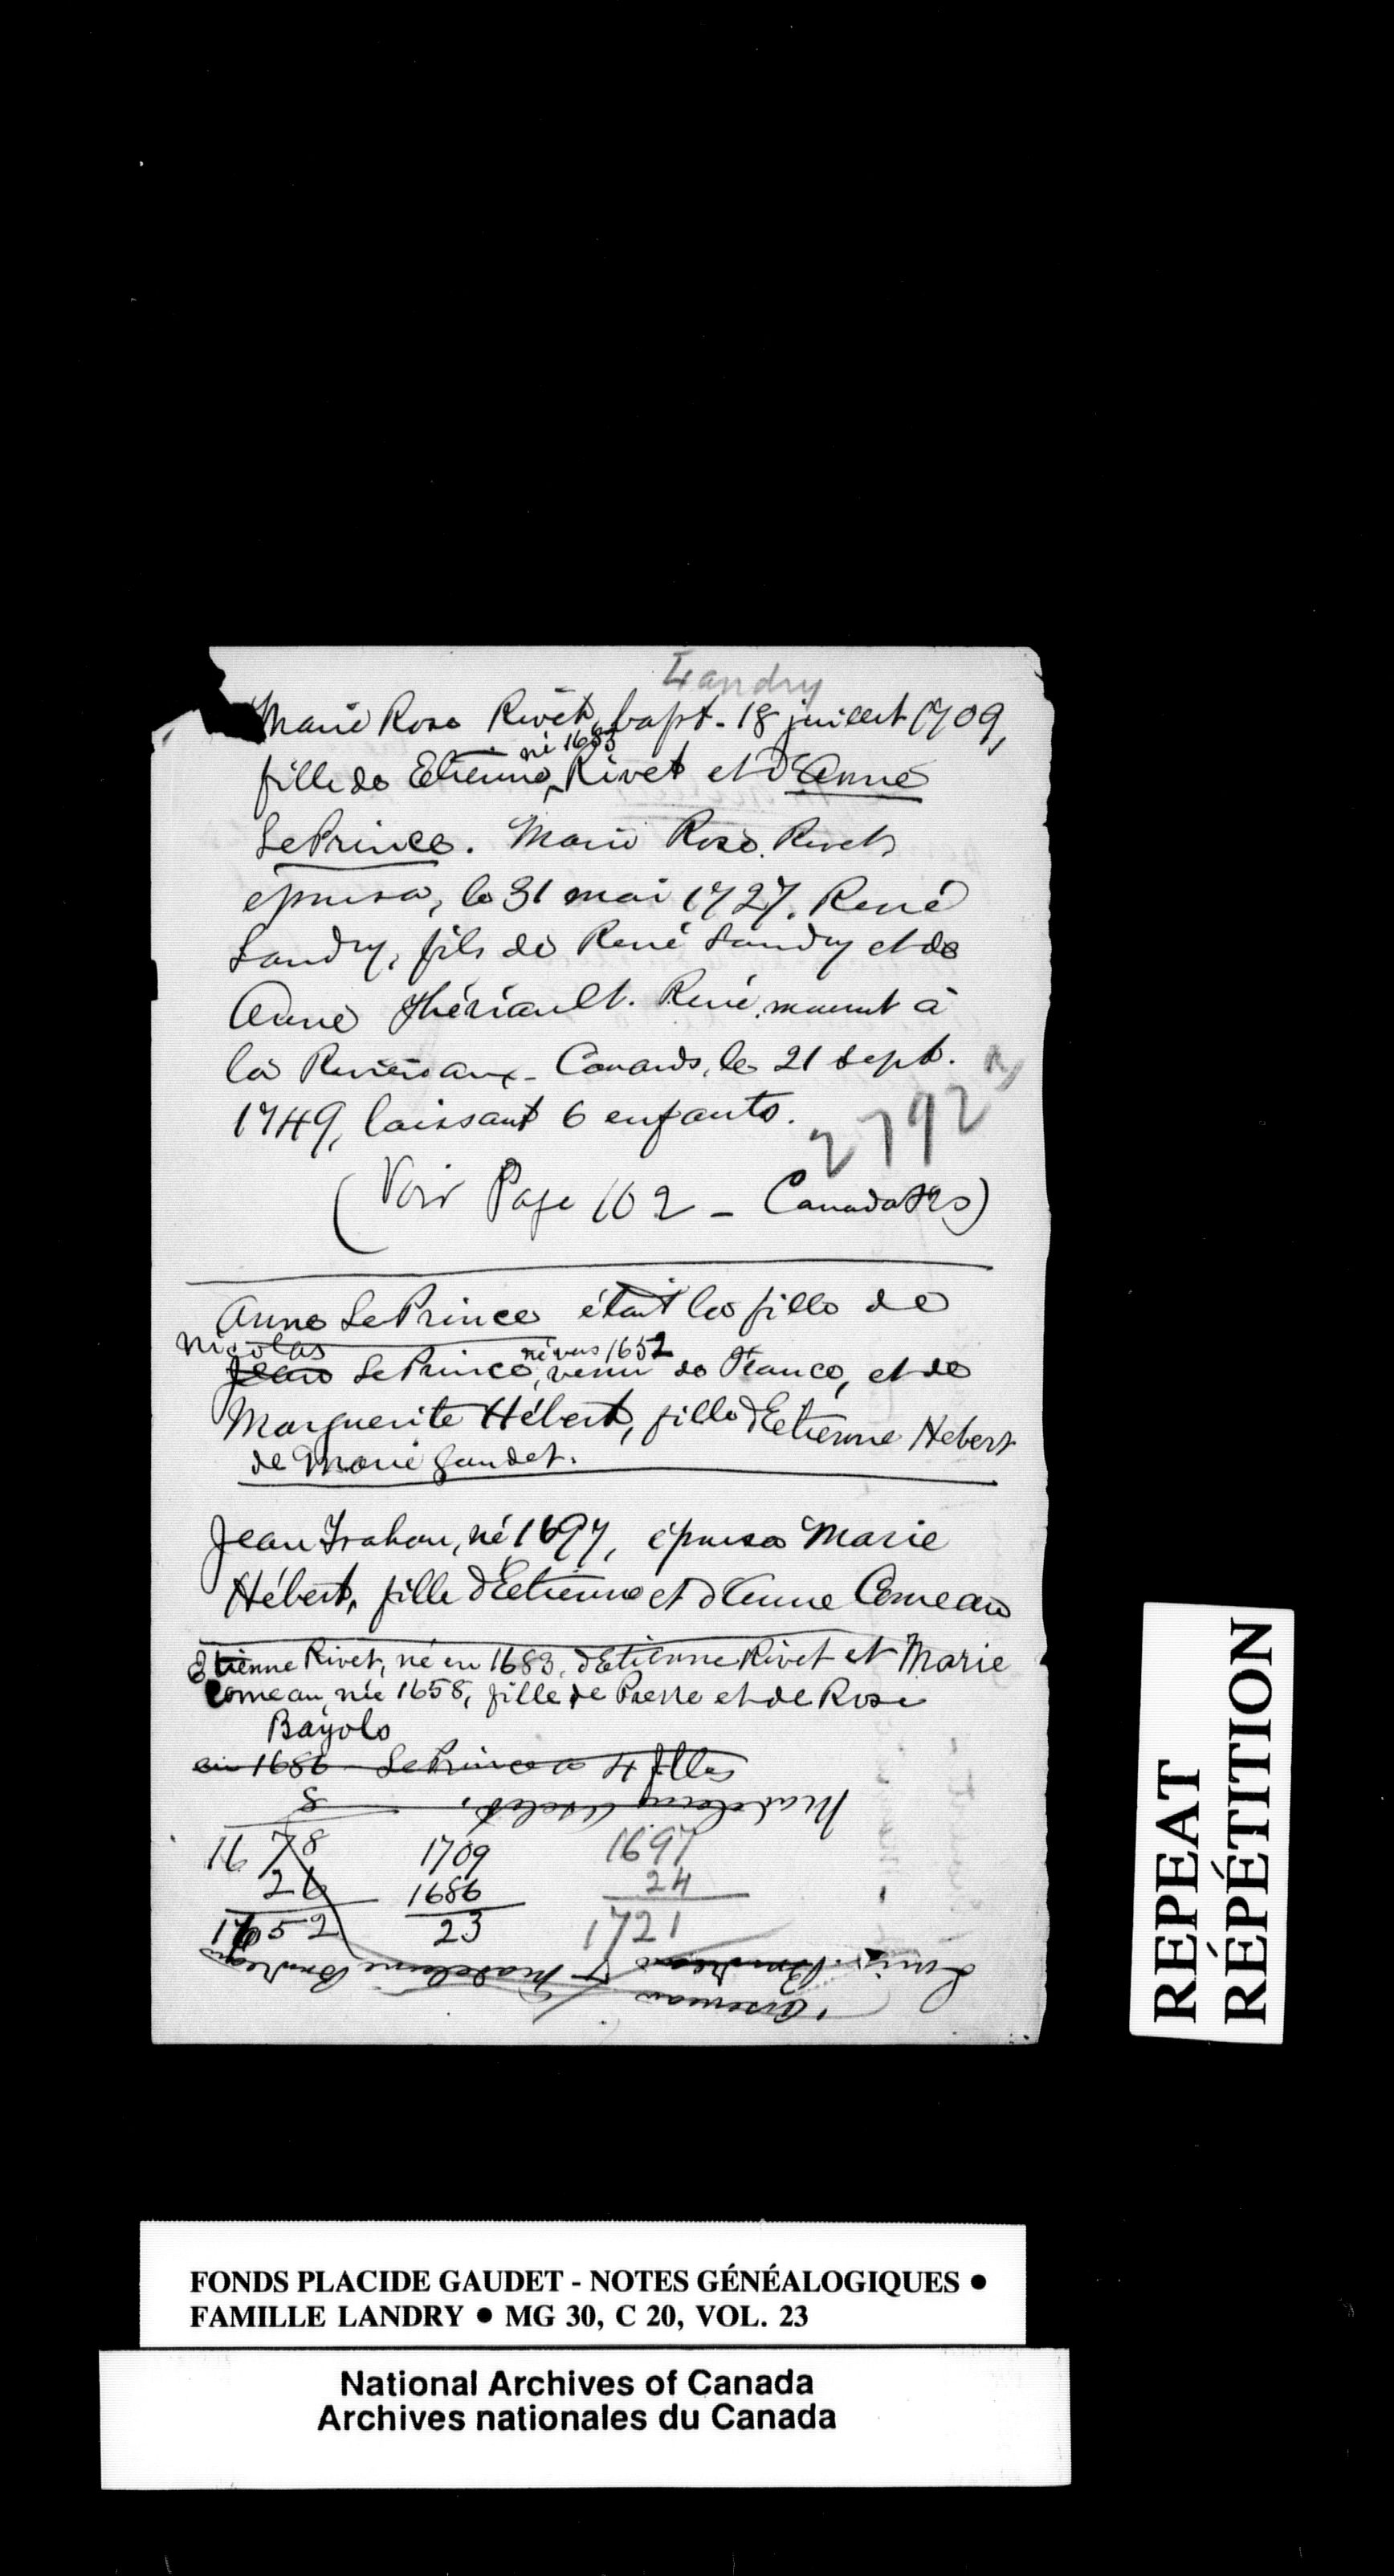 Landry
Marie Rose Rivet, bapt. 18 juillet 1709,
né 1683
fille de Etienne Rivet et d'Anne
LePrince. Marie Rose Rivet
épousa, le 31 mai 1727, René
Landry, fils de René Landry et de
Anne Thériault. René mourut à
la Rivière aux Canards, le 21 sept.
1749, laissant 6 enfants.
2792
(Voir Page 102 -
Anne LePrince était la fille de
Nicolas né vers 1652
Jean LePrince, venu de France, et de
Marguerite Hébert, fille d'Etienne Hebert
de Marie Gaudet.
Jean Trahan, né 1697, épousa Marie
Hébert, fille d'Etienne et d'Anne Comeau
Etienne Rivet, né en 1683, d'Etienne Rivet et Marie
Comeau, née 1658, fille de Pierre et de Rose
Bayols
en 1686 LePrince a 4 filles
8
1678 1709 1697
26 1686 24
1652 23 1721
Madeleine
REPEAT
RÉPÉTITION
FONDS PLACIDE GAUDET - NOTES GÉNÉALOGIQUES ●
FAMILLE LANDRY ● MG 30, C 20, VOL. 23
National Archives of Canada
Archives nationales du Canada